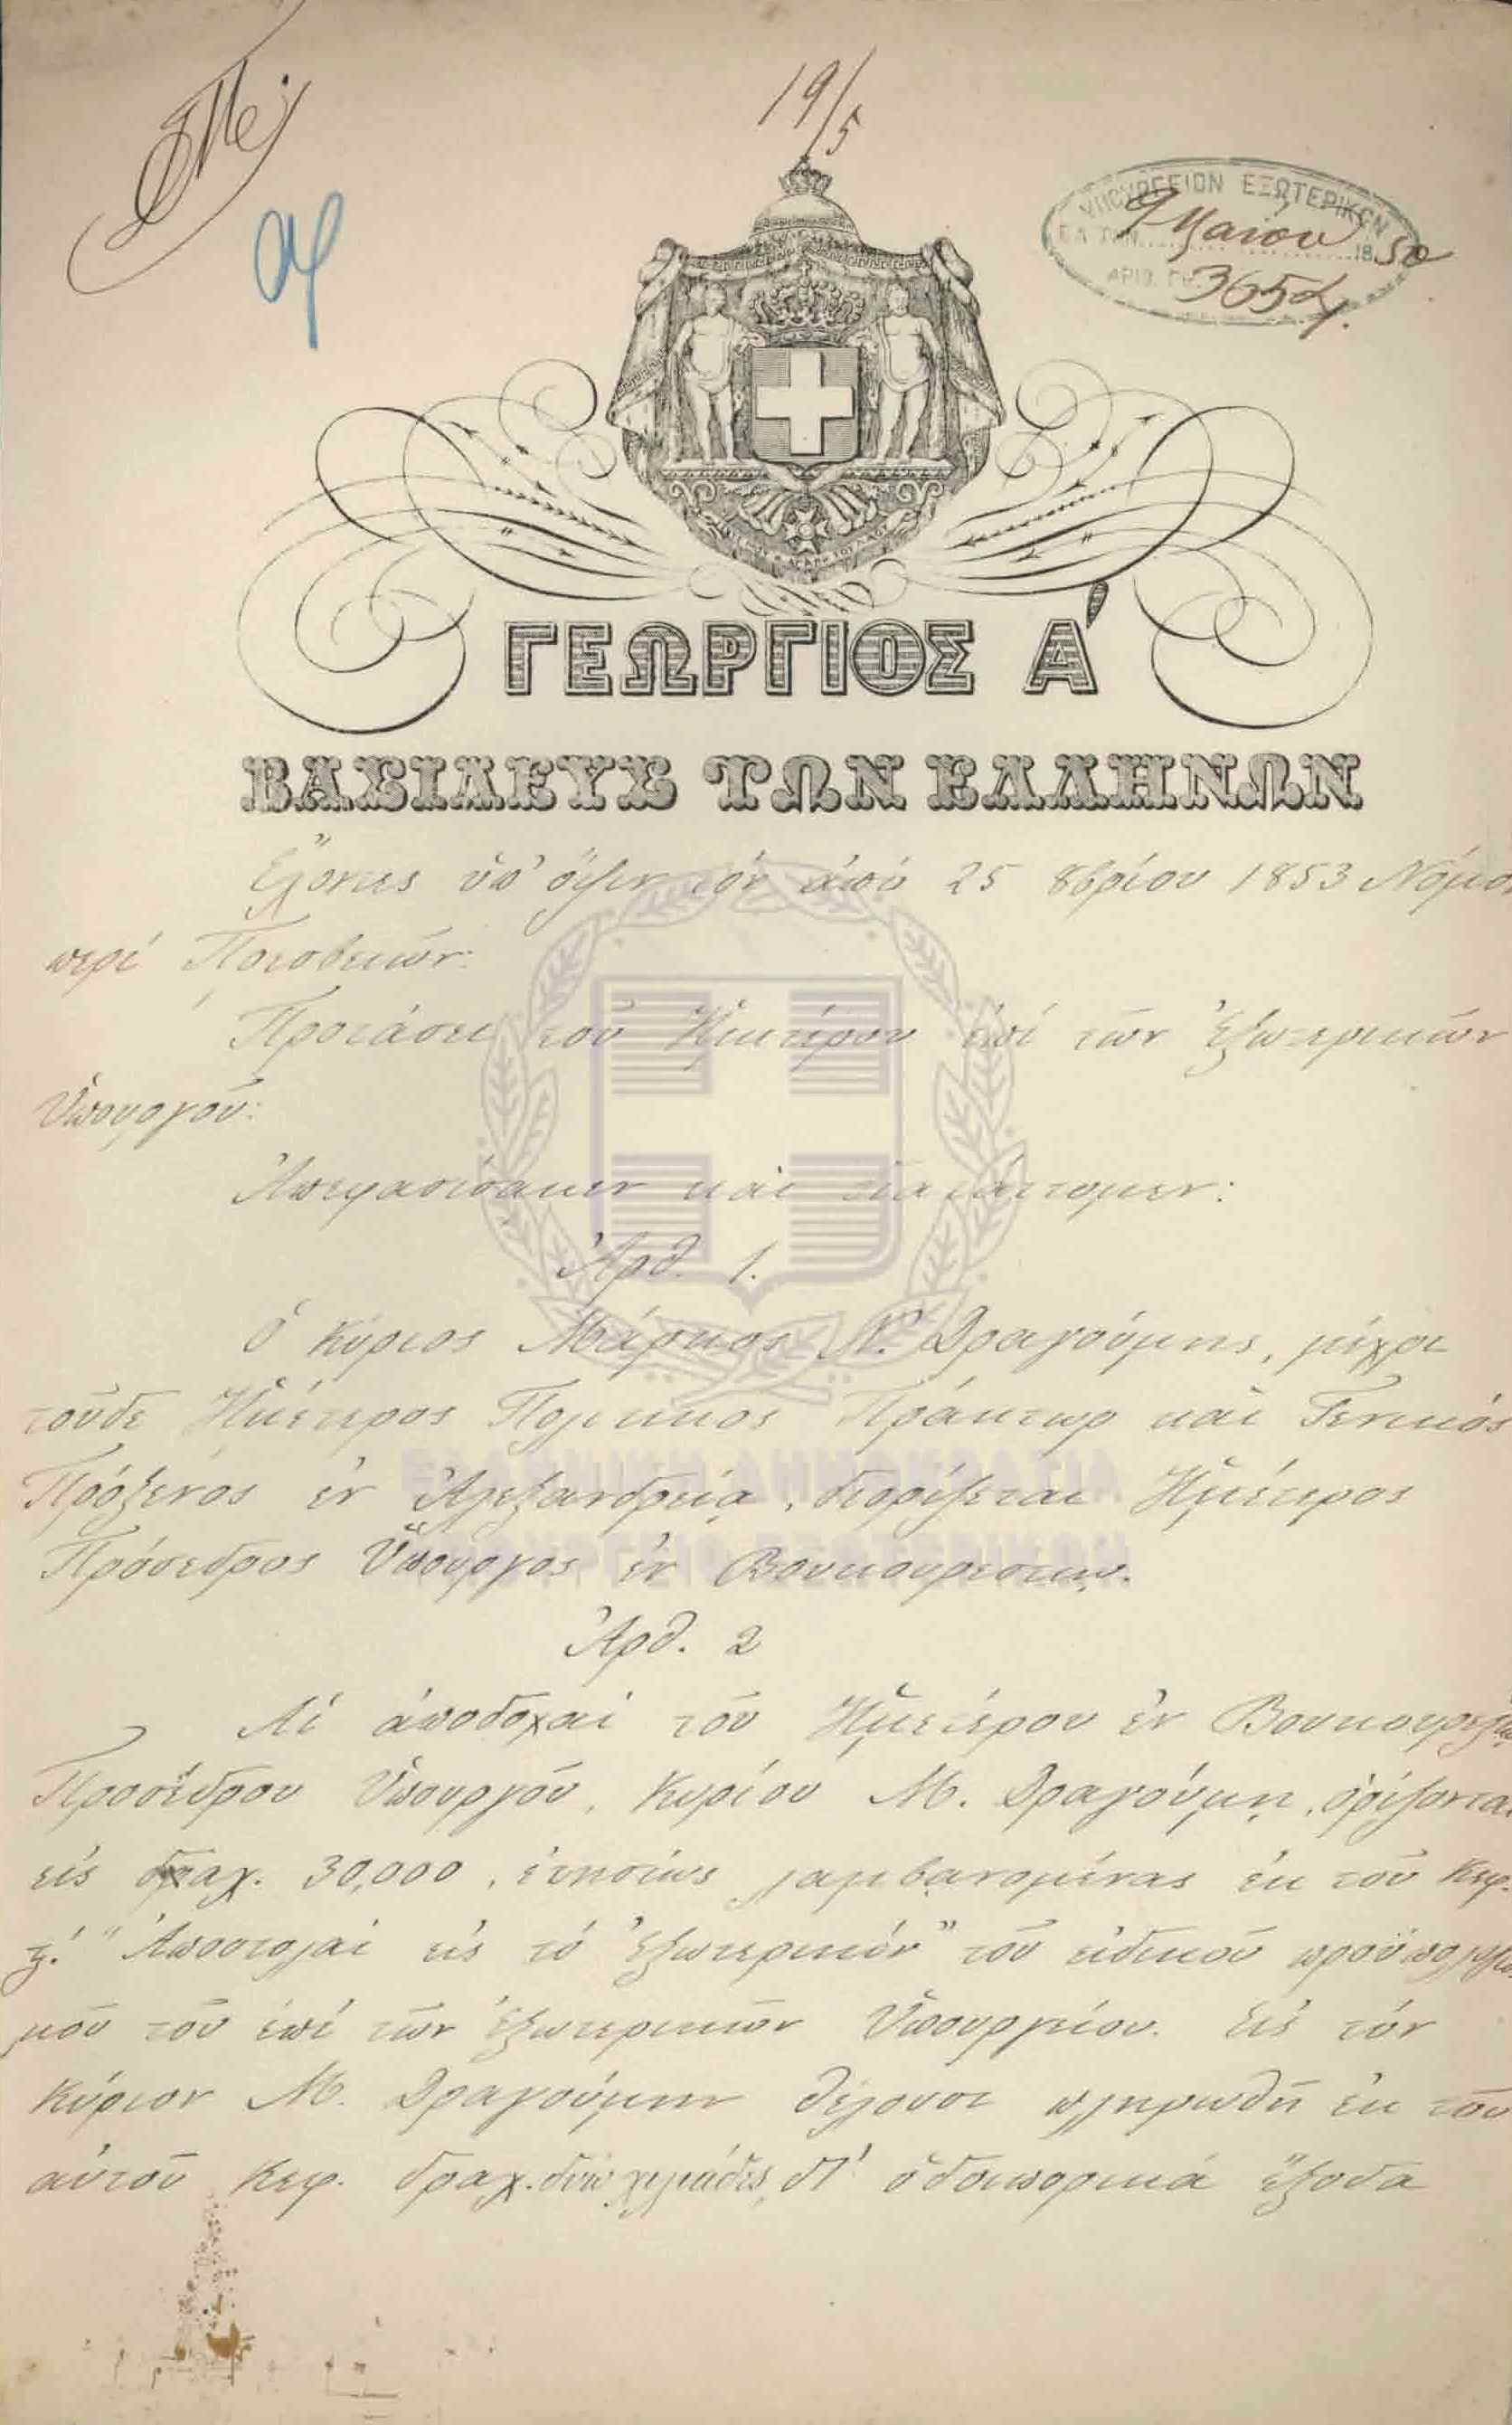 19/5
ΥΠΟΥΡΓΕΙΟΝ ΕΞΩΤΕΡΙΚΩΝ
9 Μαΐου 18
ΑΡΙΘ.
ΓΕΩΡΓΙΟΣ Α΄
ΒΑΣΙΛΕΥΣ ΤΩΝ ΕΛΛΗΝΩΝ
Ἔχοντες ὑπ' ὄψιν τὸν ἀπὸ 25 8βρίου 1853 Νόμον
περὶ Πρεσβειῶν:
Προτάσει τοῦ Ἡμετέρου ἐπὶ τῶν Ἐξωτερικῶν
Ὑπουργοῦ:
Ἀπεφασίσαμεν καὶ διατάττομεν:
Ἀρθ. 1.
Ὁ Κύριος Μάρκος Ν. Δραγούμης, μέχρι
τοῦδε Ἡμέτερος Πολιτικὸς Πράκτωρ καὶ Γενικὸς
Πρόξενος ἐν Ἀλεξανδρείᾳ, διορίζεται Ἡμέτερος
Πρόσεδρος Ὑπουργὸς ἐν Βουκουρεστίῳ.
Ἀρθ. 2
Αἱ ἀποδοχαὶ τοῦ Ἡμετέρου ἐν Βουκουρεστίῳ
Προσέδρου Ὑπουργοῦ, Κυρίου Μ. Δραγούμη, ὁρίζονται
εἰς δραχ. 30,000, ἐτησίως λαμβανομένας ἐκ τοῦ Κεφ.
ζ΄. "Ἀποστολαὶ εἰς τὸ Ἐξωτερικὸν" τοῦ εἰδικοῦ προϋπολογισ
μοῦ τοῦ ἐπὶ τῶν Ἐξωτερικῶν Ὑπουργείου. Εἰς τὸν
Κύριον Μ. Δραγούμην θέλουσι πληρωθῆ ἐκ τοῦ
αὐτοῦ Κεφ. δραχ. δύω χιλιάδες, δι' ὁδοιπορικὰ ἔξοδα